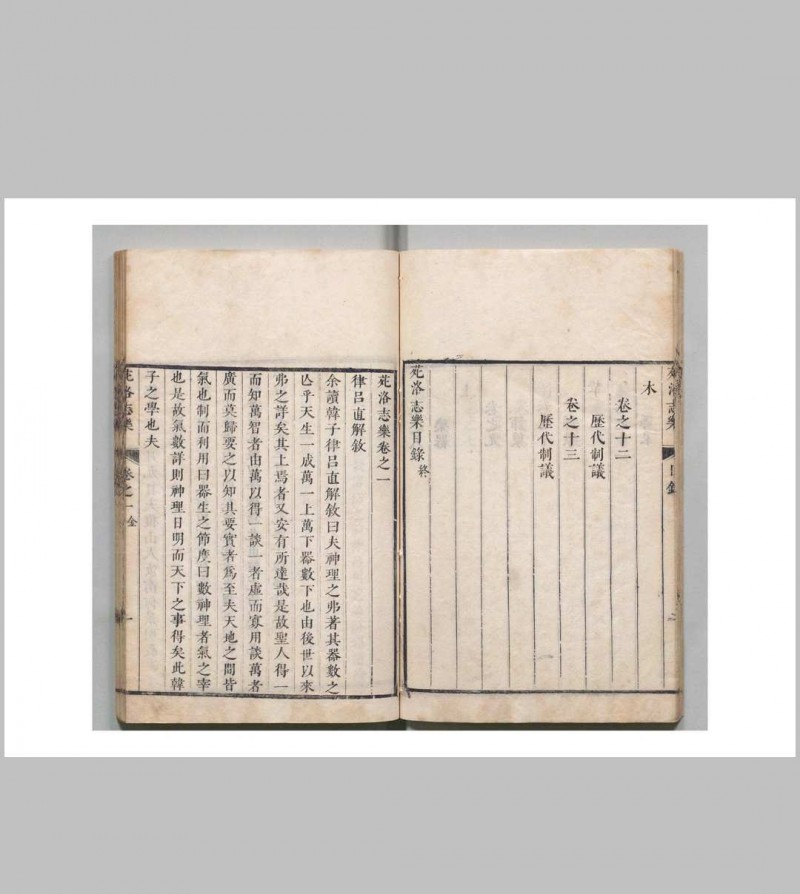 苑洛志樂 目錄
木
卷之十二
歷代制議
卷之十三
歷代制議
苑洛志樂目錄 終
苑洛志樂卷之一
律呂直解敘
余讀韓子律呂直解敘曰夫神理之弗著其器數之
亾乎天生一成萬一上萬下器數下也由後世以來
弗之詳矣其上焉者又安有所達哉是故聖人得一
而知萬智者由萬以得一談一者虛而寡用談萬者
廣而莫歸要之以知其要實者爲至夫天地之間皆
氣也制而利用曰器生之節度曰數神理者氣之宰
也是故氣數詳則神理日明而天下之事得矣此韓
子之學也夫
苑洛志樂 卷之一 金 一